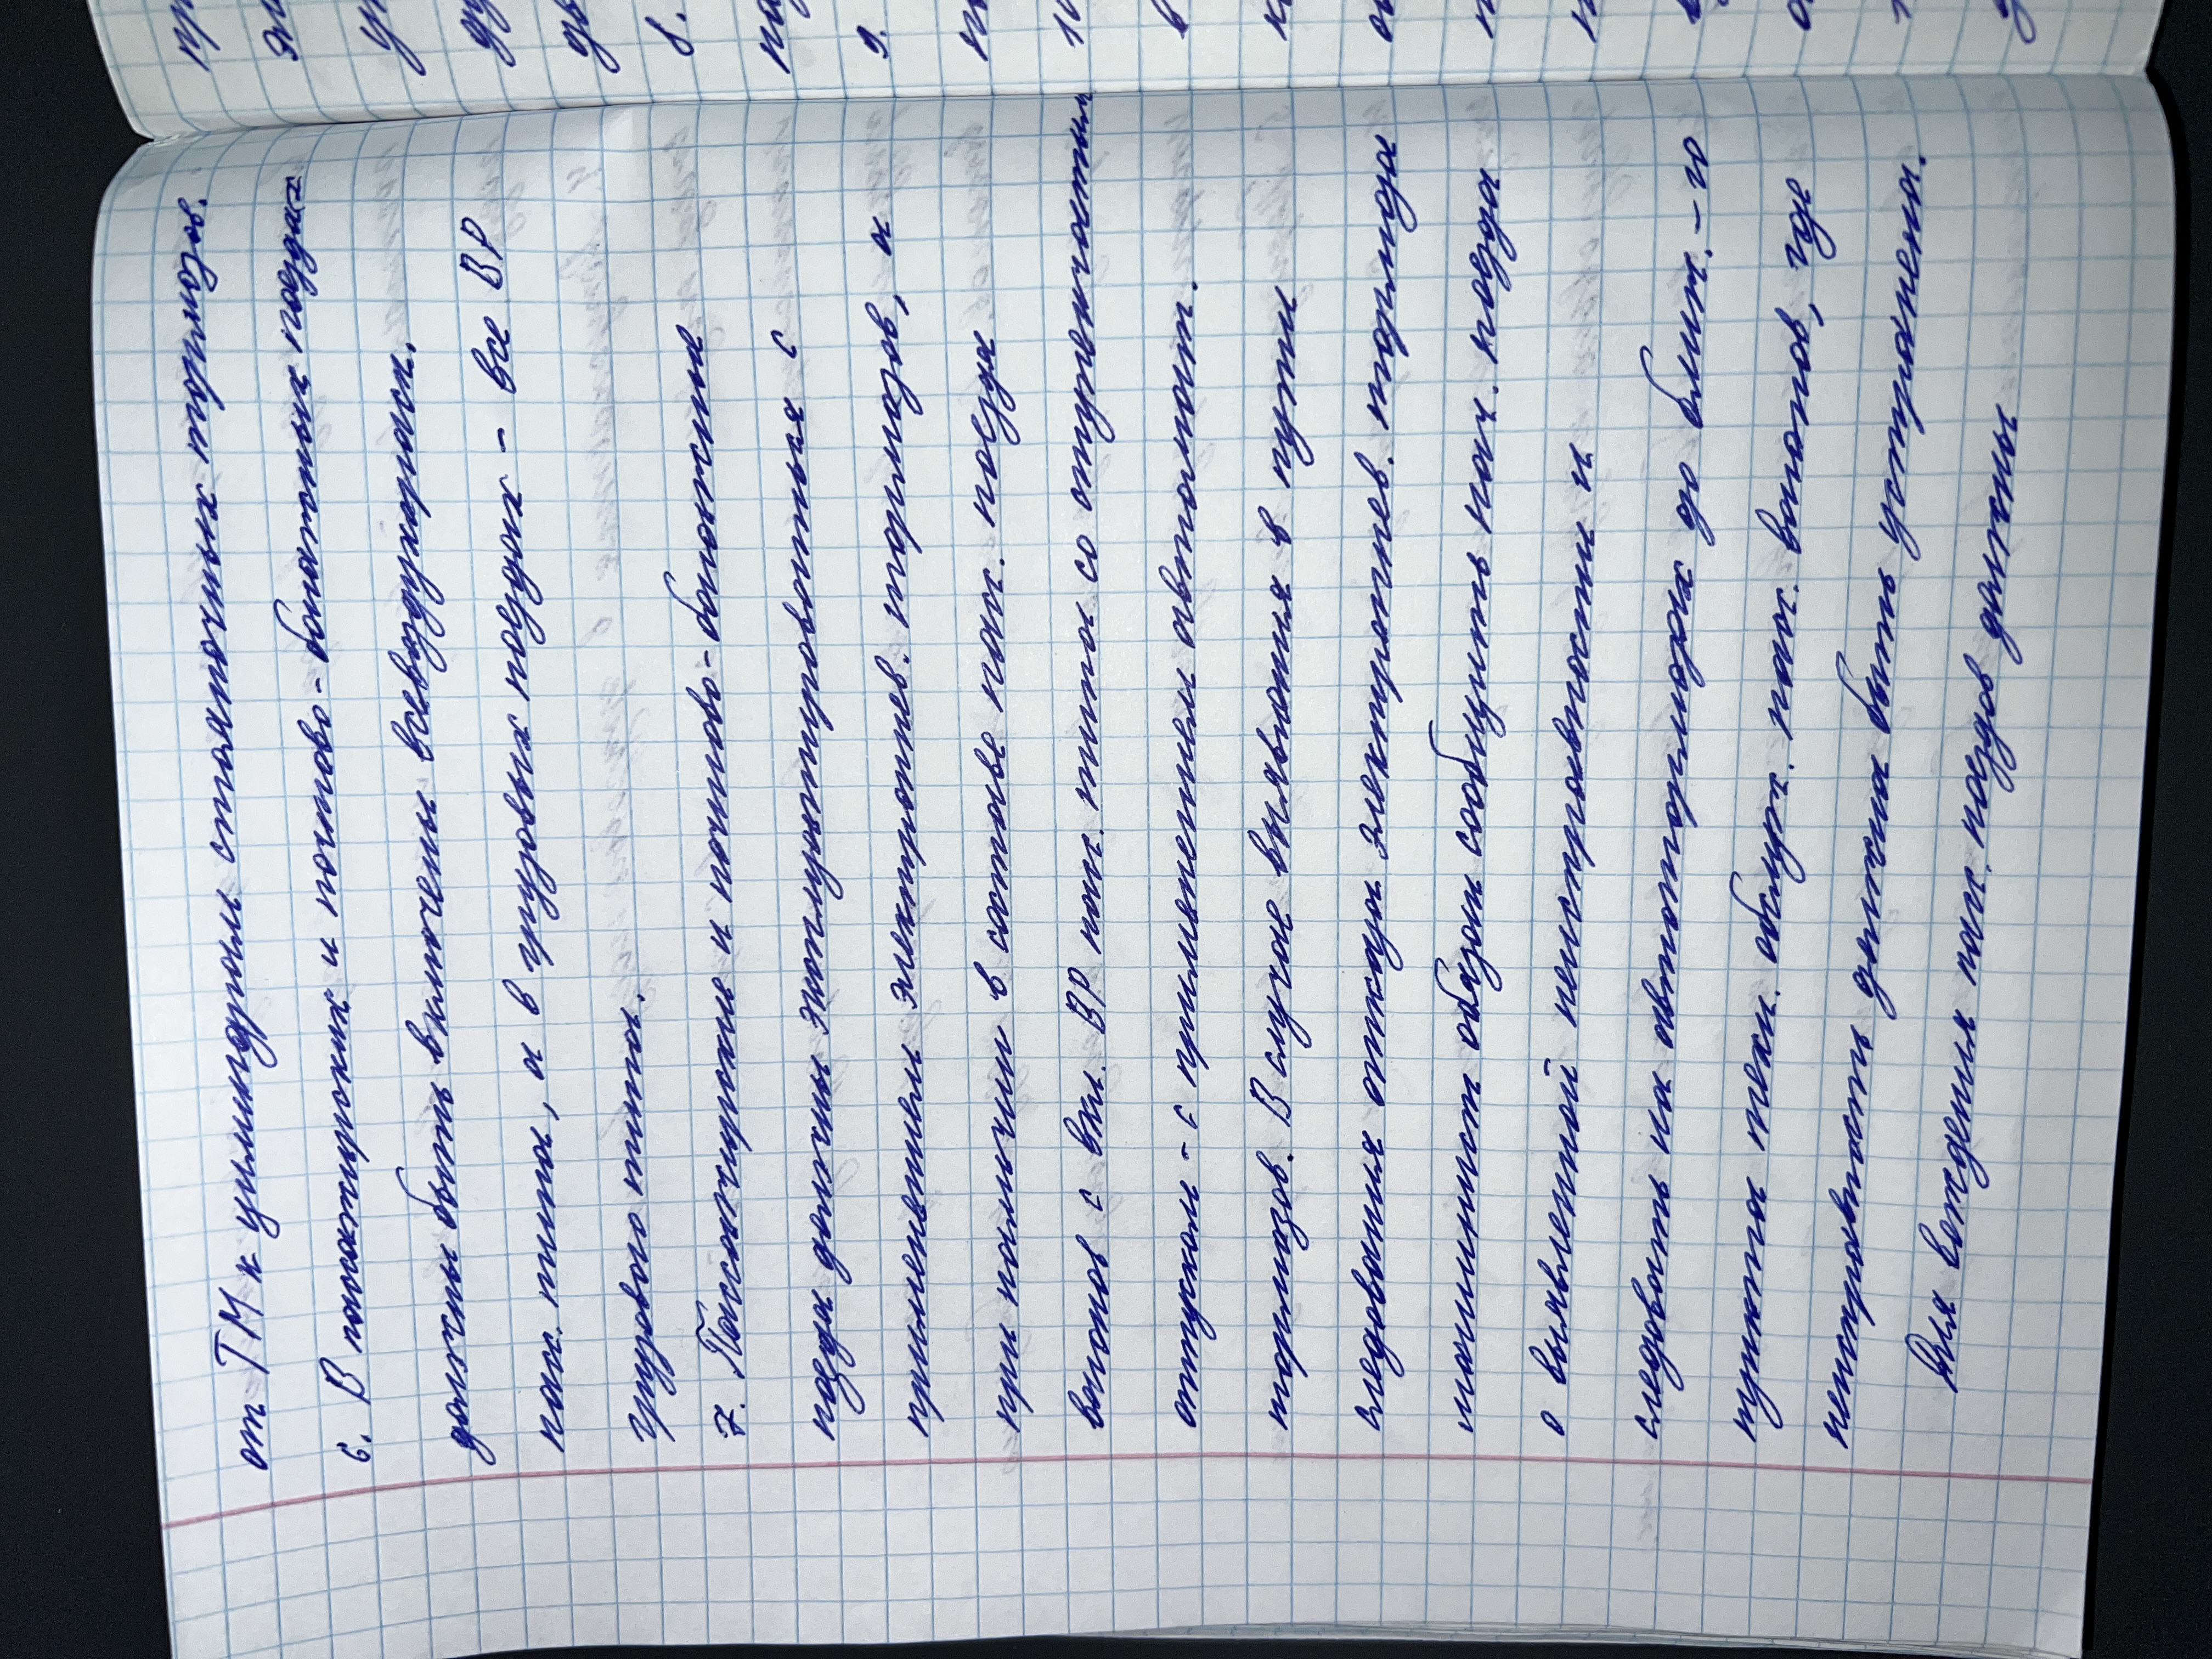 от ТМ к цилиндрам стояночных
6. В пассажирских и почтово-багажных поездах
должны быть включены все воздухорасп.
пасс. типа, а в грузовых поездах - все ВР
грузового типа.
7. Пассажирские и почтово-багажные
поезда должны эксплуатироваться с
применением электропнев. тормозов, а
при наличии в составе пасс. поезда
вагонов с вкл. ВР пасс. типа со ступенчатым
отпуском - с применением автомат.
тормозов. В случае выявления в пути
следования отказа электропнев. тормоза
машинист обязан сообщить нач. поезда
о выявленной неисправности и
следовать на автотормозах до ближ.-го
пункта техн. обслуж. пасс. вагонов, где
неисправность должна быть устранена.
Для вождения пасс. поездов должны
8.
9.